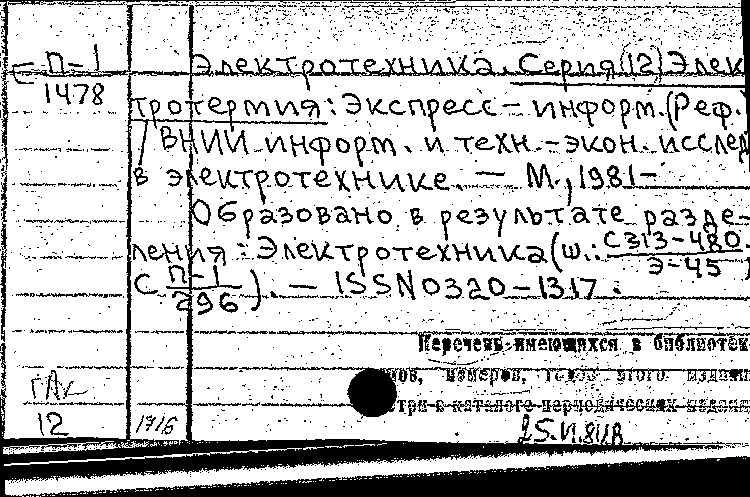 С П-1
1478
Электротехника. Серия (12) Элек
тротермия: Экспресс-информ. (Реф.)
/ ВНИИ информ. и техн.-экон. исслед
в электротехнике. — М., 1981-
Образовано в результате разде-
ления: Электротехника (ш.: С313-480
Э-45
С П-1
296). — ISSN 0320-1317.
Перечень имеющихся в библиотек
ов, номеров, томов этого издани
три в каталоге периодических издани
12
1716